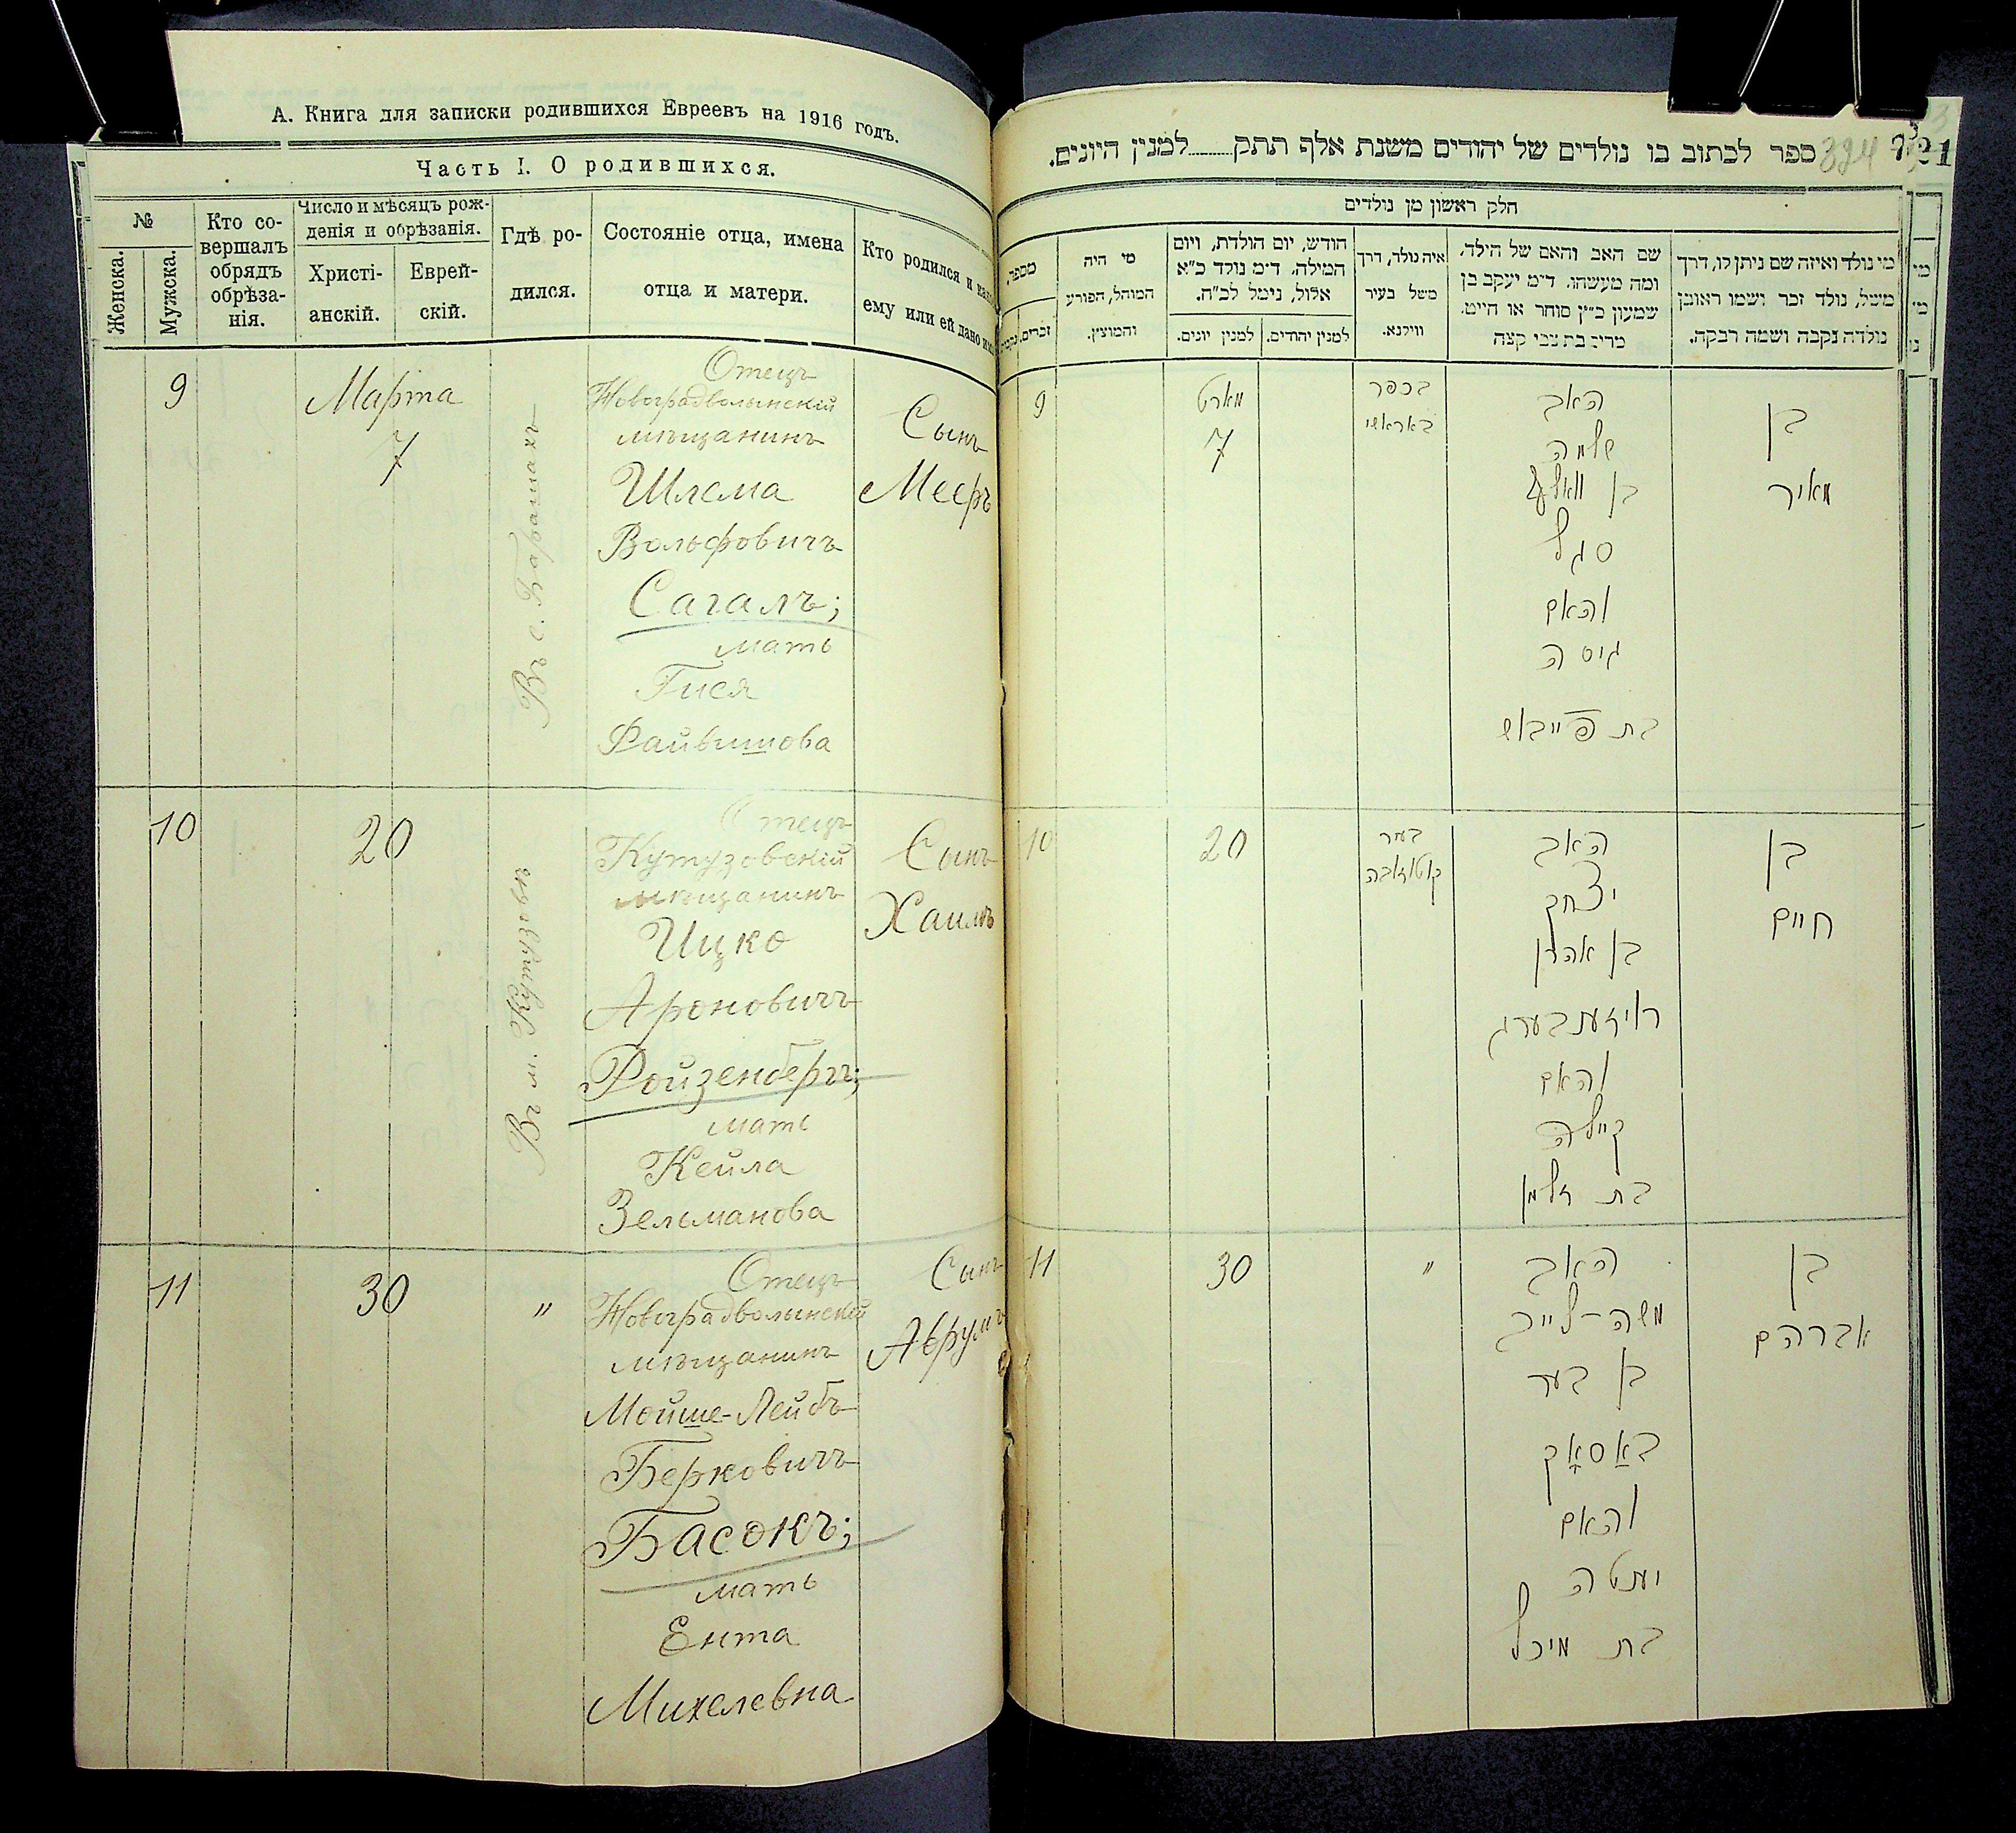 А. Книга для записки родившихся Евреевъ на 1916 годъ.
Часть I. О родившихся.
№
Женска.
Мужска.
Кто со-
вершалъ
обрядъ
обрѣза-
нія.
Число и мѣсяцъ рож-
денія и обрѣзанія.
Христі-
анскій.
Еврей-
скій.
Гдѣ ро-
дился.
Состояніе отца, имена
отца и матери.
Кто родился и
ему или ей дано
9
Марта
7
Въ с. Барашахъ
Отецъ
Новоградволынскій
мѣщанинъ
Шлема
Вольфовичъ
Сагалъ;
мать
Гися
Файвишова
Сынъ
Мееръ
10
20
Въ м. Кутузовѣ
Отецъ
Кутузовскій
мѣщанинъ
Ицко
Ароновичъ
Ройзенбергъ;
мать
Кейла
Зельманова
Сынъ
Хаимъ
11
30
"
Отецъ
Новоградволынскій
мѣщанинъ
Мойше-Лейбъ
Берковичъ
Басокъ;
мать
Ента
Михелевна
Сынъ
Аврумъ
ספר לכתוב בו נולדים של יהודים משנת אלף תתק למנין היונים.
324
חלק ראשון מן נולדים
מי נולד ואיזה שם ניתן לו, דרך
משל, נולד זכר ושמו ראובן
נולדה נקבה ושמה רבקה.
שם האב והאם של הילד,
ומה מעשהו. ד״מ יעקב בן
שמעון כ״ץ סוחר או חייט.
מרים בת צבי קצה
איה נולד, דרך
משל בעיר
ווילנא.
חודש, יום הולדת, ויום
המילה. ד״מ נולד כ״א
אלול, נימל לכ״ח.
למנין יהודים.
למנין יונים.
מי היה
המוהל, הפורע
והמוצץ.
מספר,
זכרים.
בן
מאיר
האב
שלמה
בן וואלף
סגל
והאם
גיסה
בת פייבוש
בכפר
באראשי
מארט
7
9
בן
חיים
האב
יצחק
בן אהרן
רויזענבערג
והאם
קיילה
בת זלמן
קוטוזובה
20
10
בן
אברהם
האב
משה-לייב
בן בער
באסאק
והאם
יענטה
בת מיכל
"
30
11